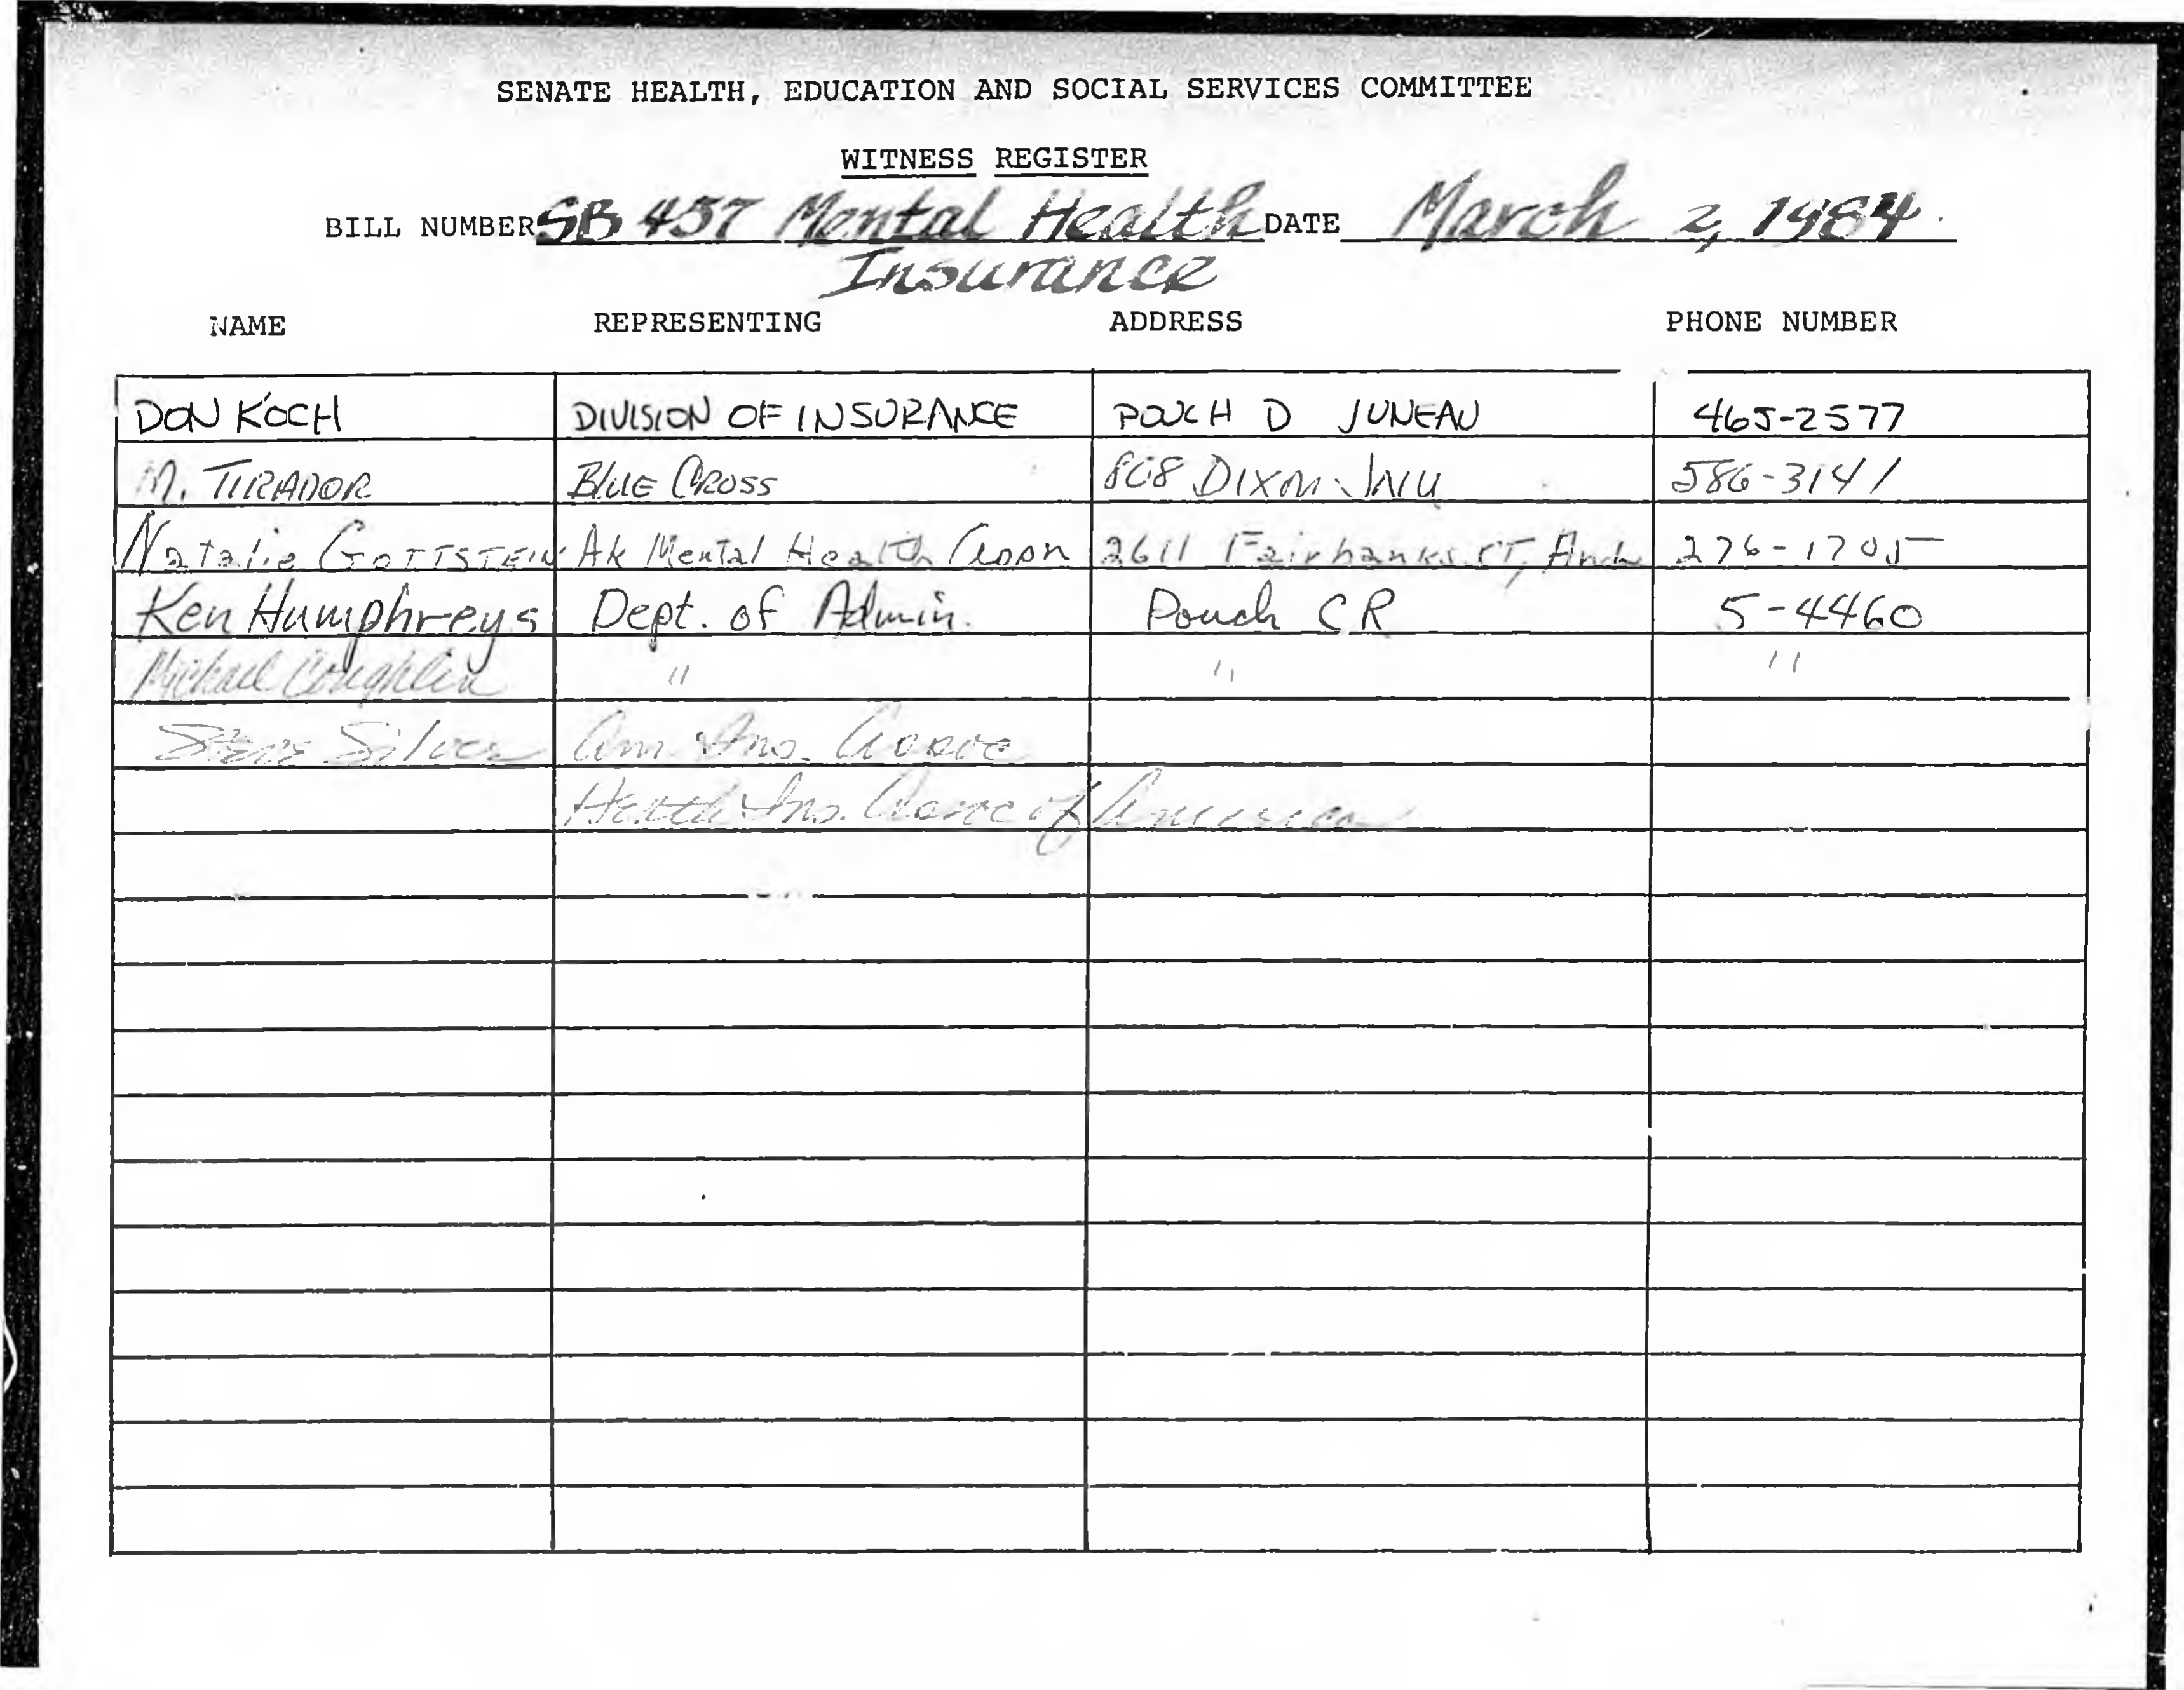 SENATE HEALTH, EDUCATION AND SOCIAL SERVICES COMMITTEE
WITNESS REGISTER
BILL NUMBER SB 457 Mental Health DATE March 2, 1984
Insurance
NAME REPRESENTING ADDRESS PHONE NUMBER
DON KOCH DIVISION OF INSURANCE POUCH D JUNEAU 465-2577
M. TIRADOR BLUE CROSS 808 DIXON JNU 586-3141
Natalie GOTTSTEIN Ak Mental Health Assn 2611 Fairbanks ST, Anch 276-1705
Ken Humphreys Dept. of Admin. Pouch CR 5-4460
Michael Coughlin " " "
Steve Silver Am. Ins. Assoc
Health Ins. Assoc of America